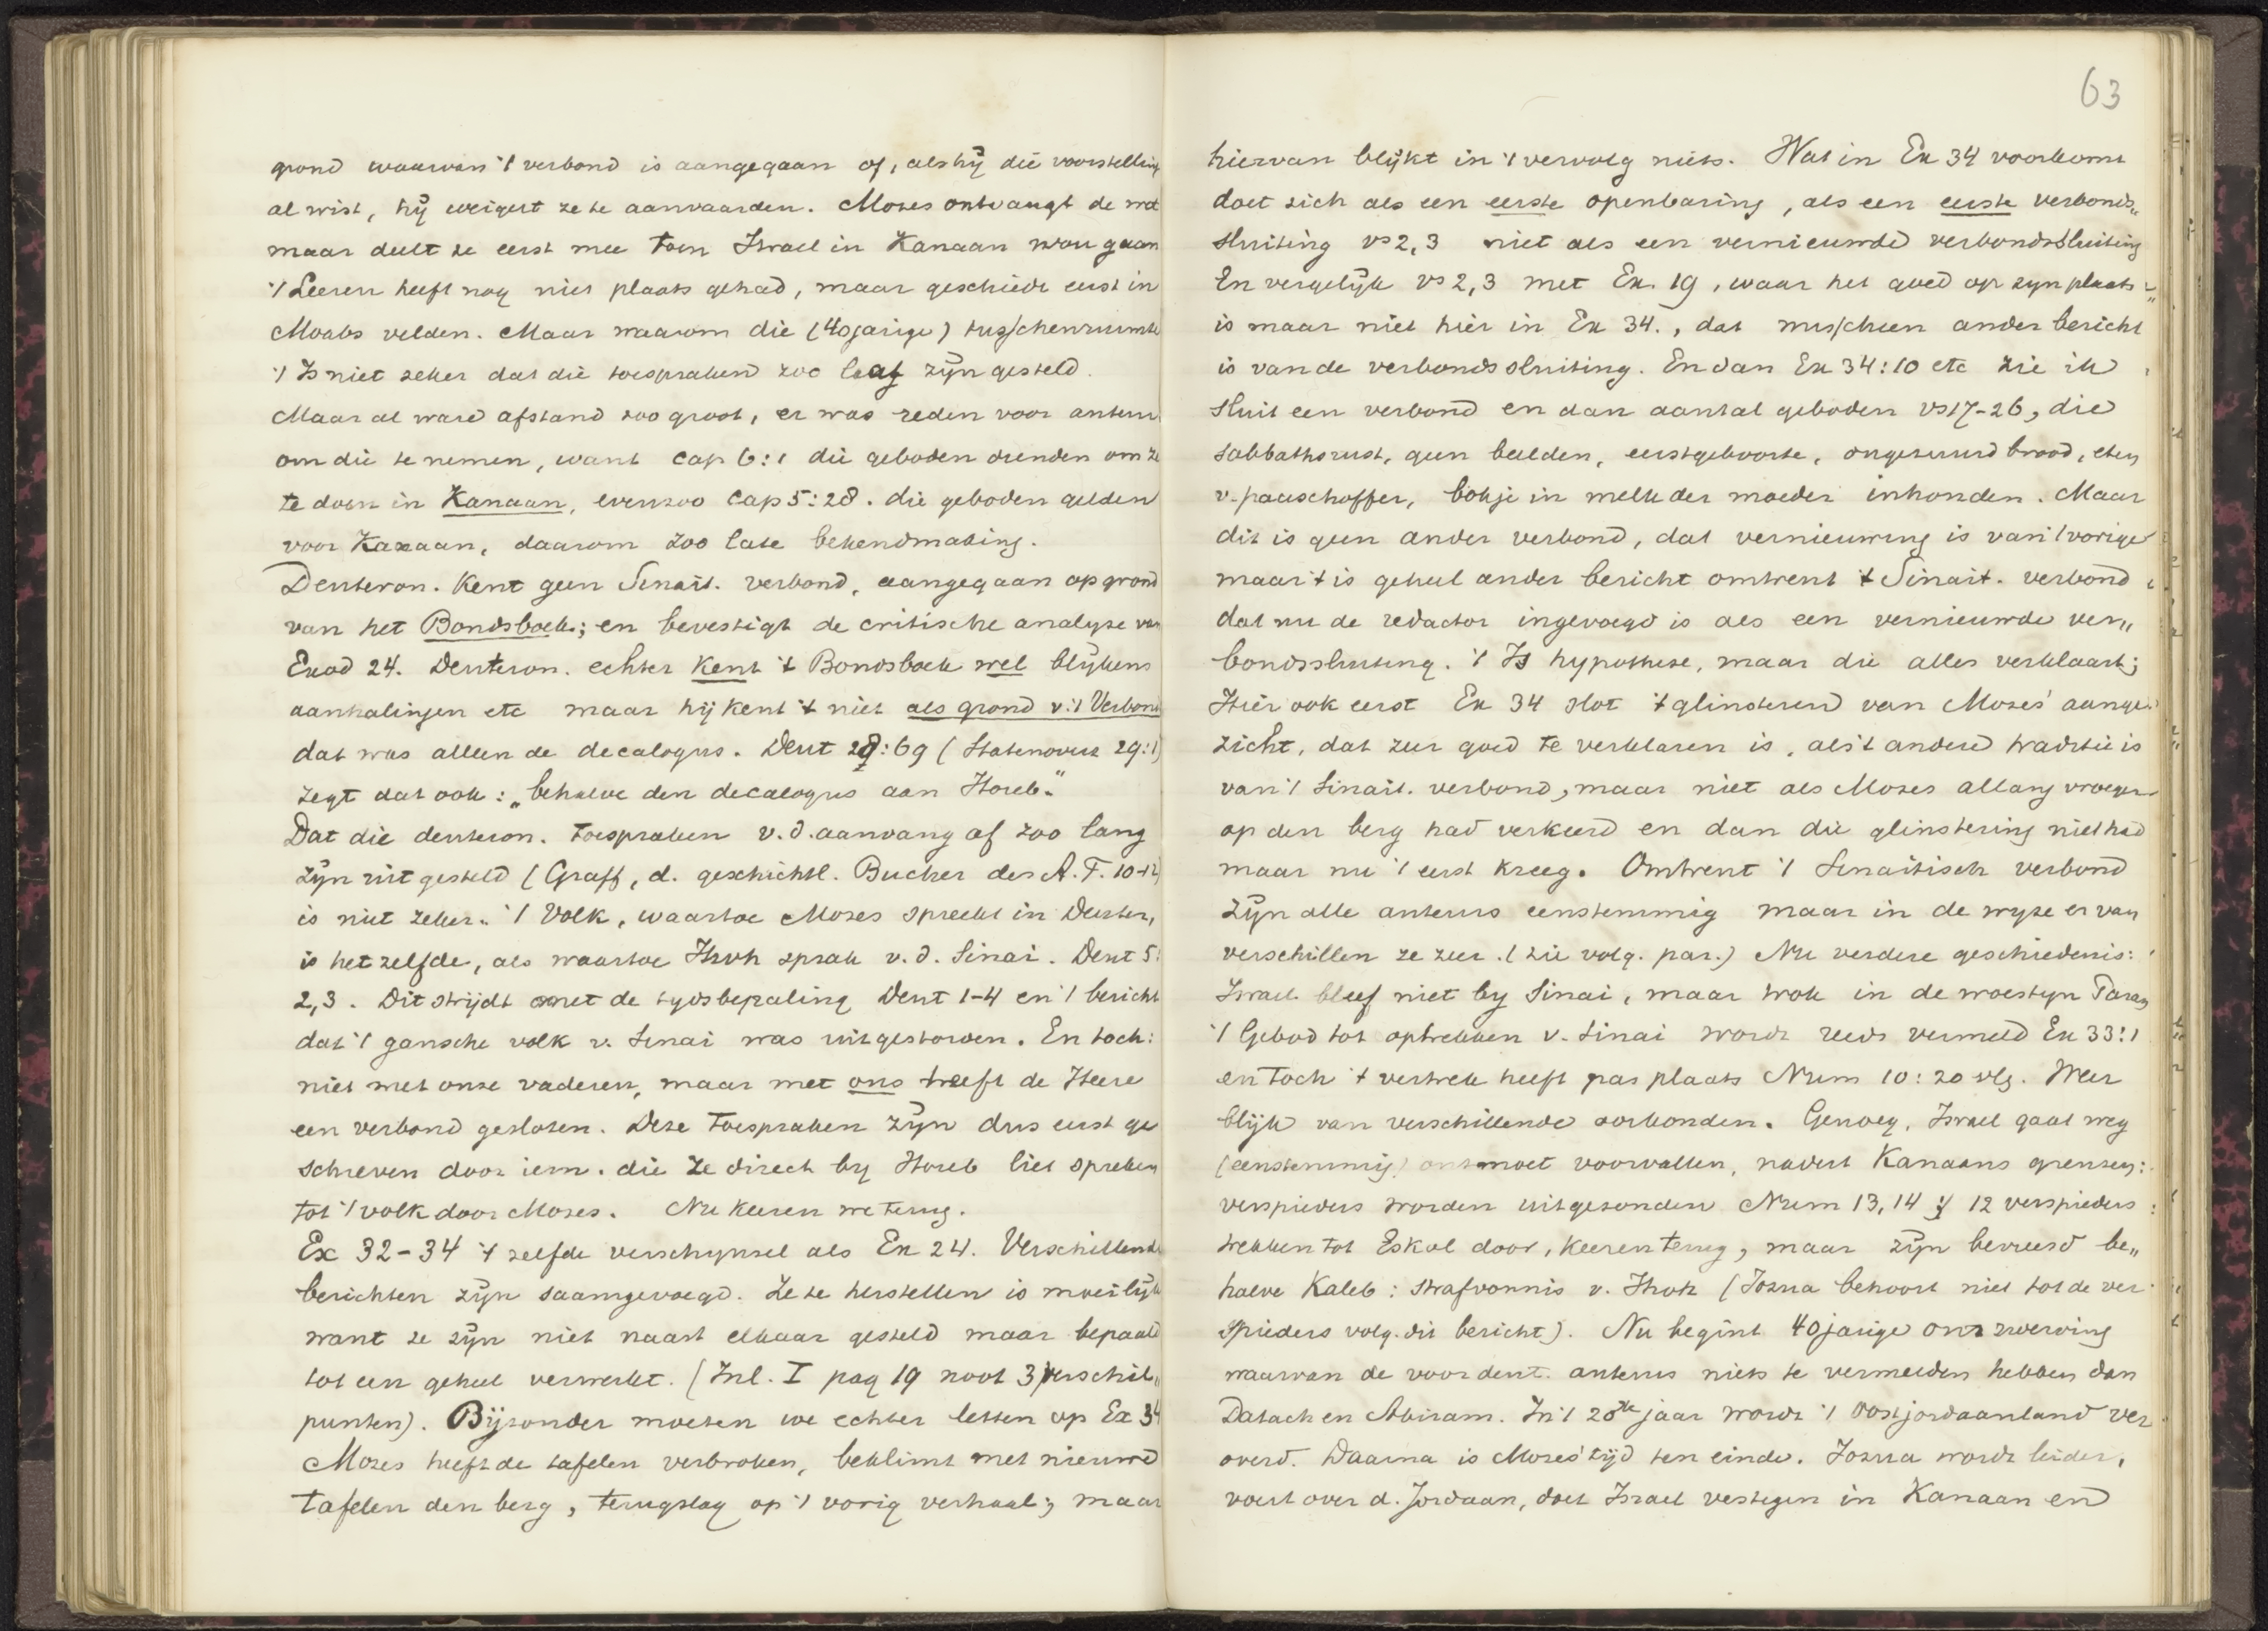 grond waarvan 't verbond is aangegaan of, als hij die voorstelling
al wist, hij weigert ze te aanvaarden. Mozes ontvangt de wet
maar deelt ze eerst mee toen Israel in Kanaan zou gaan
't Leeren heeft nog niet plaats gehad, maar geschiedt eerst in
Moabs velden. Maar waarom die (40jarige) tusschenruimte
't Is niet zeker dat die toespraken zoo laat zijn gesteld.
Maar al ware afstand zoo groot, er was reden voor auteur
om die te nemen, want cap 6:1 die geboden dienden om ze
te doen in Kanaan, evenzoo Cap 5:28. die geboden gelden
voor Kanaan, daarom zoo late bekendmaking.
Deuteron. Kent geen Sinait. verbond, aangegaan op grond
van het Bondsboek; en bevestigt de critische analyse van
Exod 24. Deuteron. echter kent 't Bondsboek wel blijkens
aanhalingen etc maar hij kent 't niet als grond v. 't Verbond
dat was alleen de decalogus. Deut 28:69 (Statenoverz 29:1)
zegt dat ook: „behalve den decalogus aan Horeb."
Dat die deuteron. toespraken v.d. aanvang af zoo lang
zijn uitgesteld (Graff, d. geschichtl. Bucher des A.T. 10-12)
is niet zeker. 't Volk, waartoe Mozes spreekt in Deuter,
is hetzelfde, als waartoe Jhvh sprak v.d. Sinai. Deut 5:
2,3. Dit strijdt met de tydsbepaling Deut 1-4 en 't bericht
dat 't gansche volk v. Sinai was uitgestorven. En toch:
niet met onze vaderen, maar met ons heeft de Heere
een verbond gesloten. Deze toespraken zijn dus eerst ge
schreven door iem. die ze direct by Horeb liet spreken
tot 't volk door Mozes. Nu keeren we terug.
Ex 32-34 't zelfde verschynsel als Ex 24. Verschillende
berichten zijn saamgevoegd. Ze te herstellen is moeilijk
want ze zijn niet naast elkaar gesteld maar bepaald
tot een geheel verwerkt. (Inl. I pag 19 noot 3 verschil„
punten). Bijzonder moeten we echter letten op Ex 34
Mozes heeft de tafelen verbroken, beklimt met nieuwe
tafelen den berg, terugslag op 't vorig verhaal; maar
63
hiervan blijkt in 't vervolg niets. Wat in Ex 34 voorkomt
doet zich als een eerste openbaring, als een eerste verbonds„
sluiting vs 2,3 niet als een vernieuwde verbondssluiting
En vergelijk vs 2,3 met Ex. 19, waar het goed op zyn plaats
is maar niet hier in Ex 34., dat misschien ander bericht
is van de verbondssluiting. En dan Ex 34:10 etc zie ik
sluit een verbond en dan aantal geboden vs 17-26, die
sabbathsrust, geen beelden, eerstgeboorte, ongezuurd brood, eten
v. paaschoffer, bokje in melk der moeder inhouden. Maar
dit is geen ander verbond, dat vernieuwing is van 't vorige
maar 't is geheel ander bericht omtrent 't Sinait. verbond
dat nu de redactor ingevoegd is als een vernieuwde ver„
bondssluiting. 't Is hypothese, maar die alles verklaart;
Hier ook eerst Ex 34 slot 't glinsteren van Mozes' aange„
zicht, dat zeer goed te verklaren is, als 't andere traditie is
van 't Sinait. verbond, maar niet als Mozes allang vroeger
op den berg had verkeerd en dan die glinstering niet had
maar nu 't eerst kreeg. Omtrent 't Sinaitisch verbond
zijn alle auteurs eenstemmig maar in de wyze ervan
verschillen ze zeer. (zie volg. par.) Nu verdere geschiedenis:
Israel bleef niet by Sinai, maar trok in de woestyn Paran
't Gebod tot optrekken v. Sinai wordt reeds vermeld Ex 33:1
en toch 't vertrek heeft pas plaats Num 10:20 vlg. Weer
blijk van verschillende oorkonden. Genoeg, Israel gaat weg
(eenstemmig) ontmoet voorvallen, nadert Kanaans grenzen:
verspieders worden uitgezonden Num 13,14 12 verspieders
trekken tot Eskol door, keeren terug, maar zijn bevreesd be„
halve Kaleb: strafvonnis v. Jhvh (Jozua behoort niet tot de ver
spieders volg. dit bericht). Nu begint 40jarige omzwerving
waarvan de voordeut. auteurs niets te vermelden hebben dan
Datach en Abiram. In 't 20ste jaar wordt 't Oostjordaanland ver
overd. Daarna is Mozes' tijd ten einde. Jozua wordt leider,
voert over d. Jordaan, doet Israel vestigen in Kanaan en